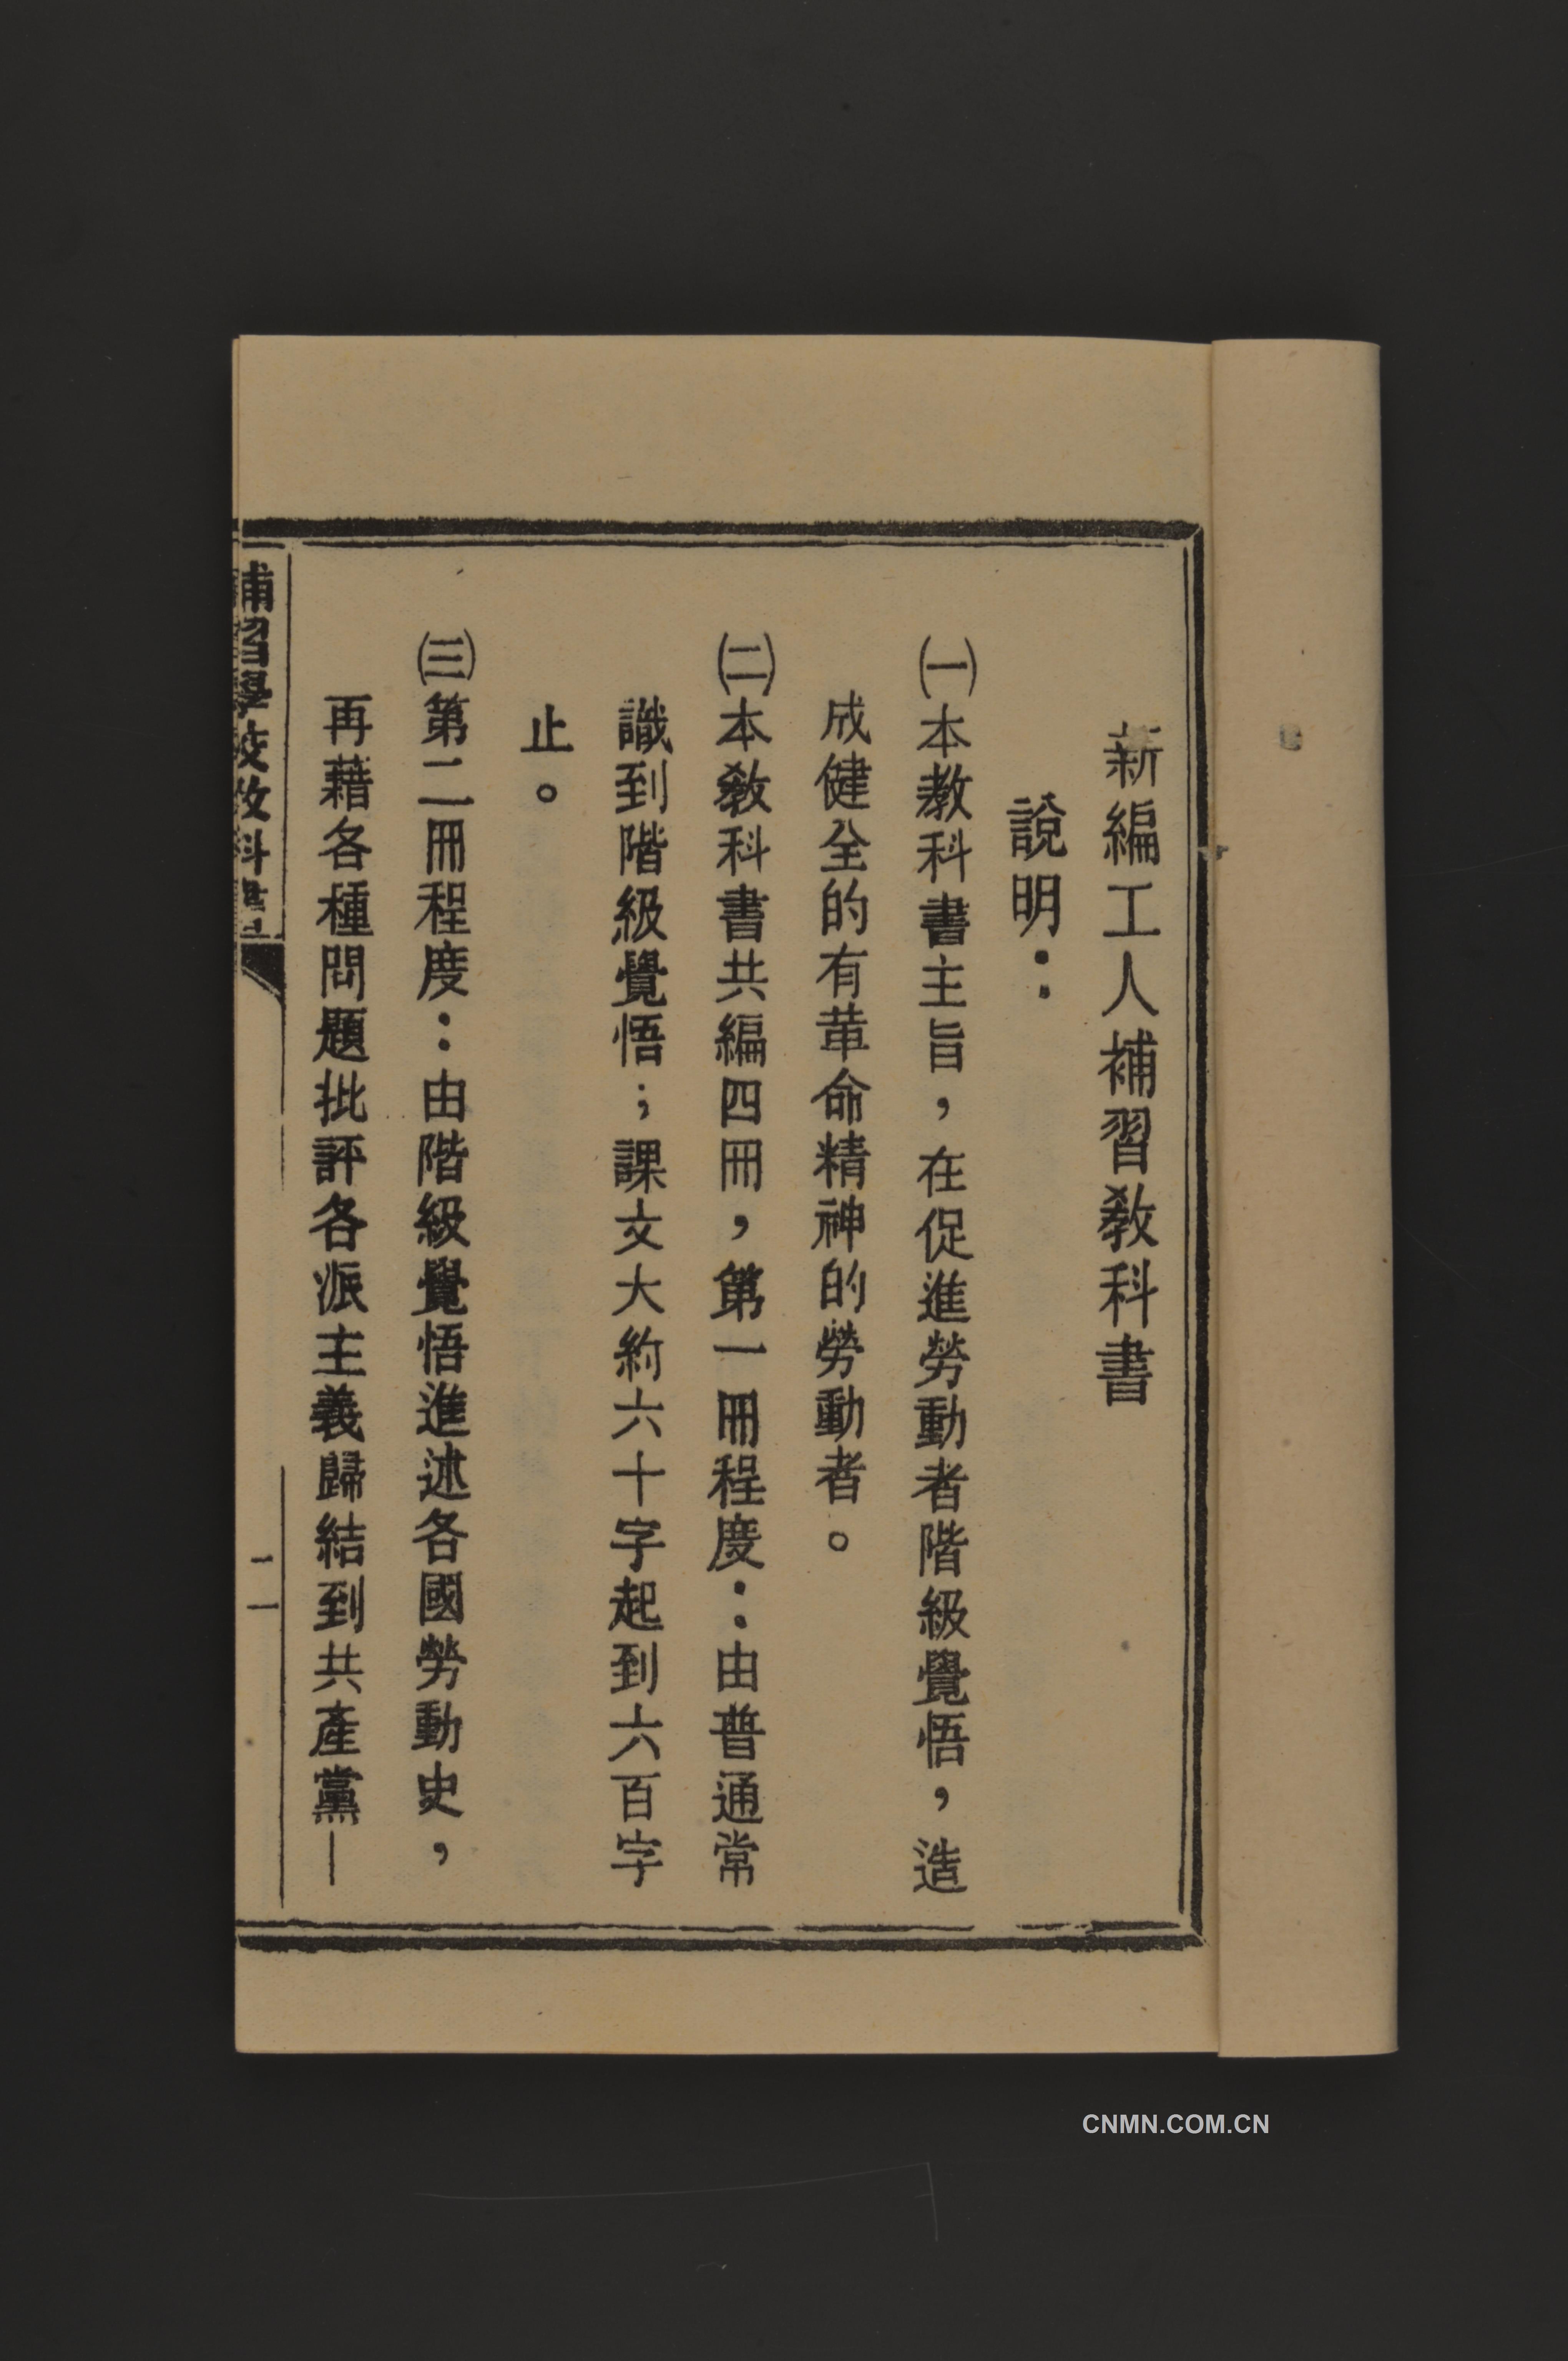 新編工人補習教科書
說明：
㈠本教科書主旨，在促進勞動者階級覺悟，造
成健全的有革命精神的勞動者。
㈡本教科書共編四冊，第一冊程度：由普通常
識到階級覺悟；課文大約六十字起到六百字
止。
㈢第二冊程度：由階級覺悟進述各國勞動史，
再藉各種問題批評各派主義歸結到共產黨—
補習學校教科書
二
CNMN.COM.CN